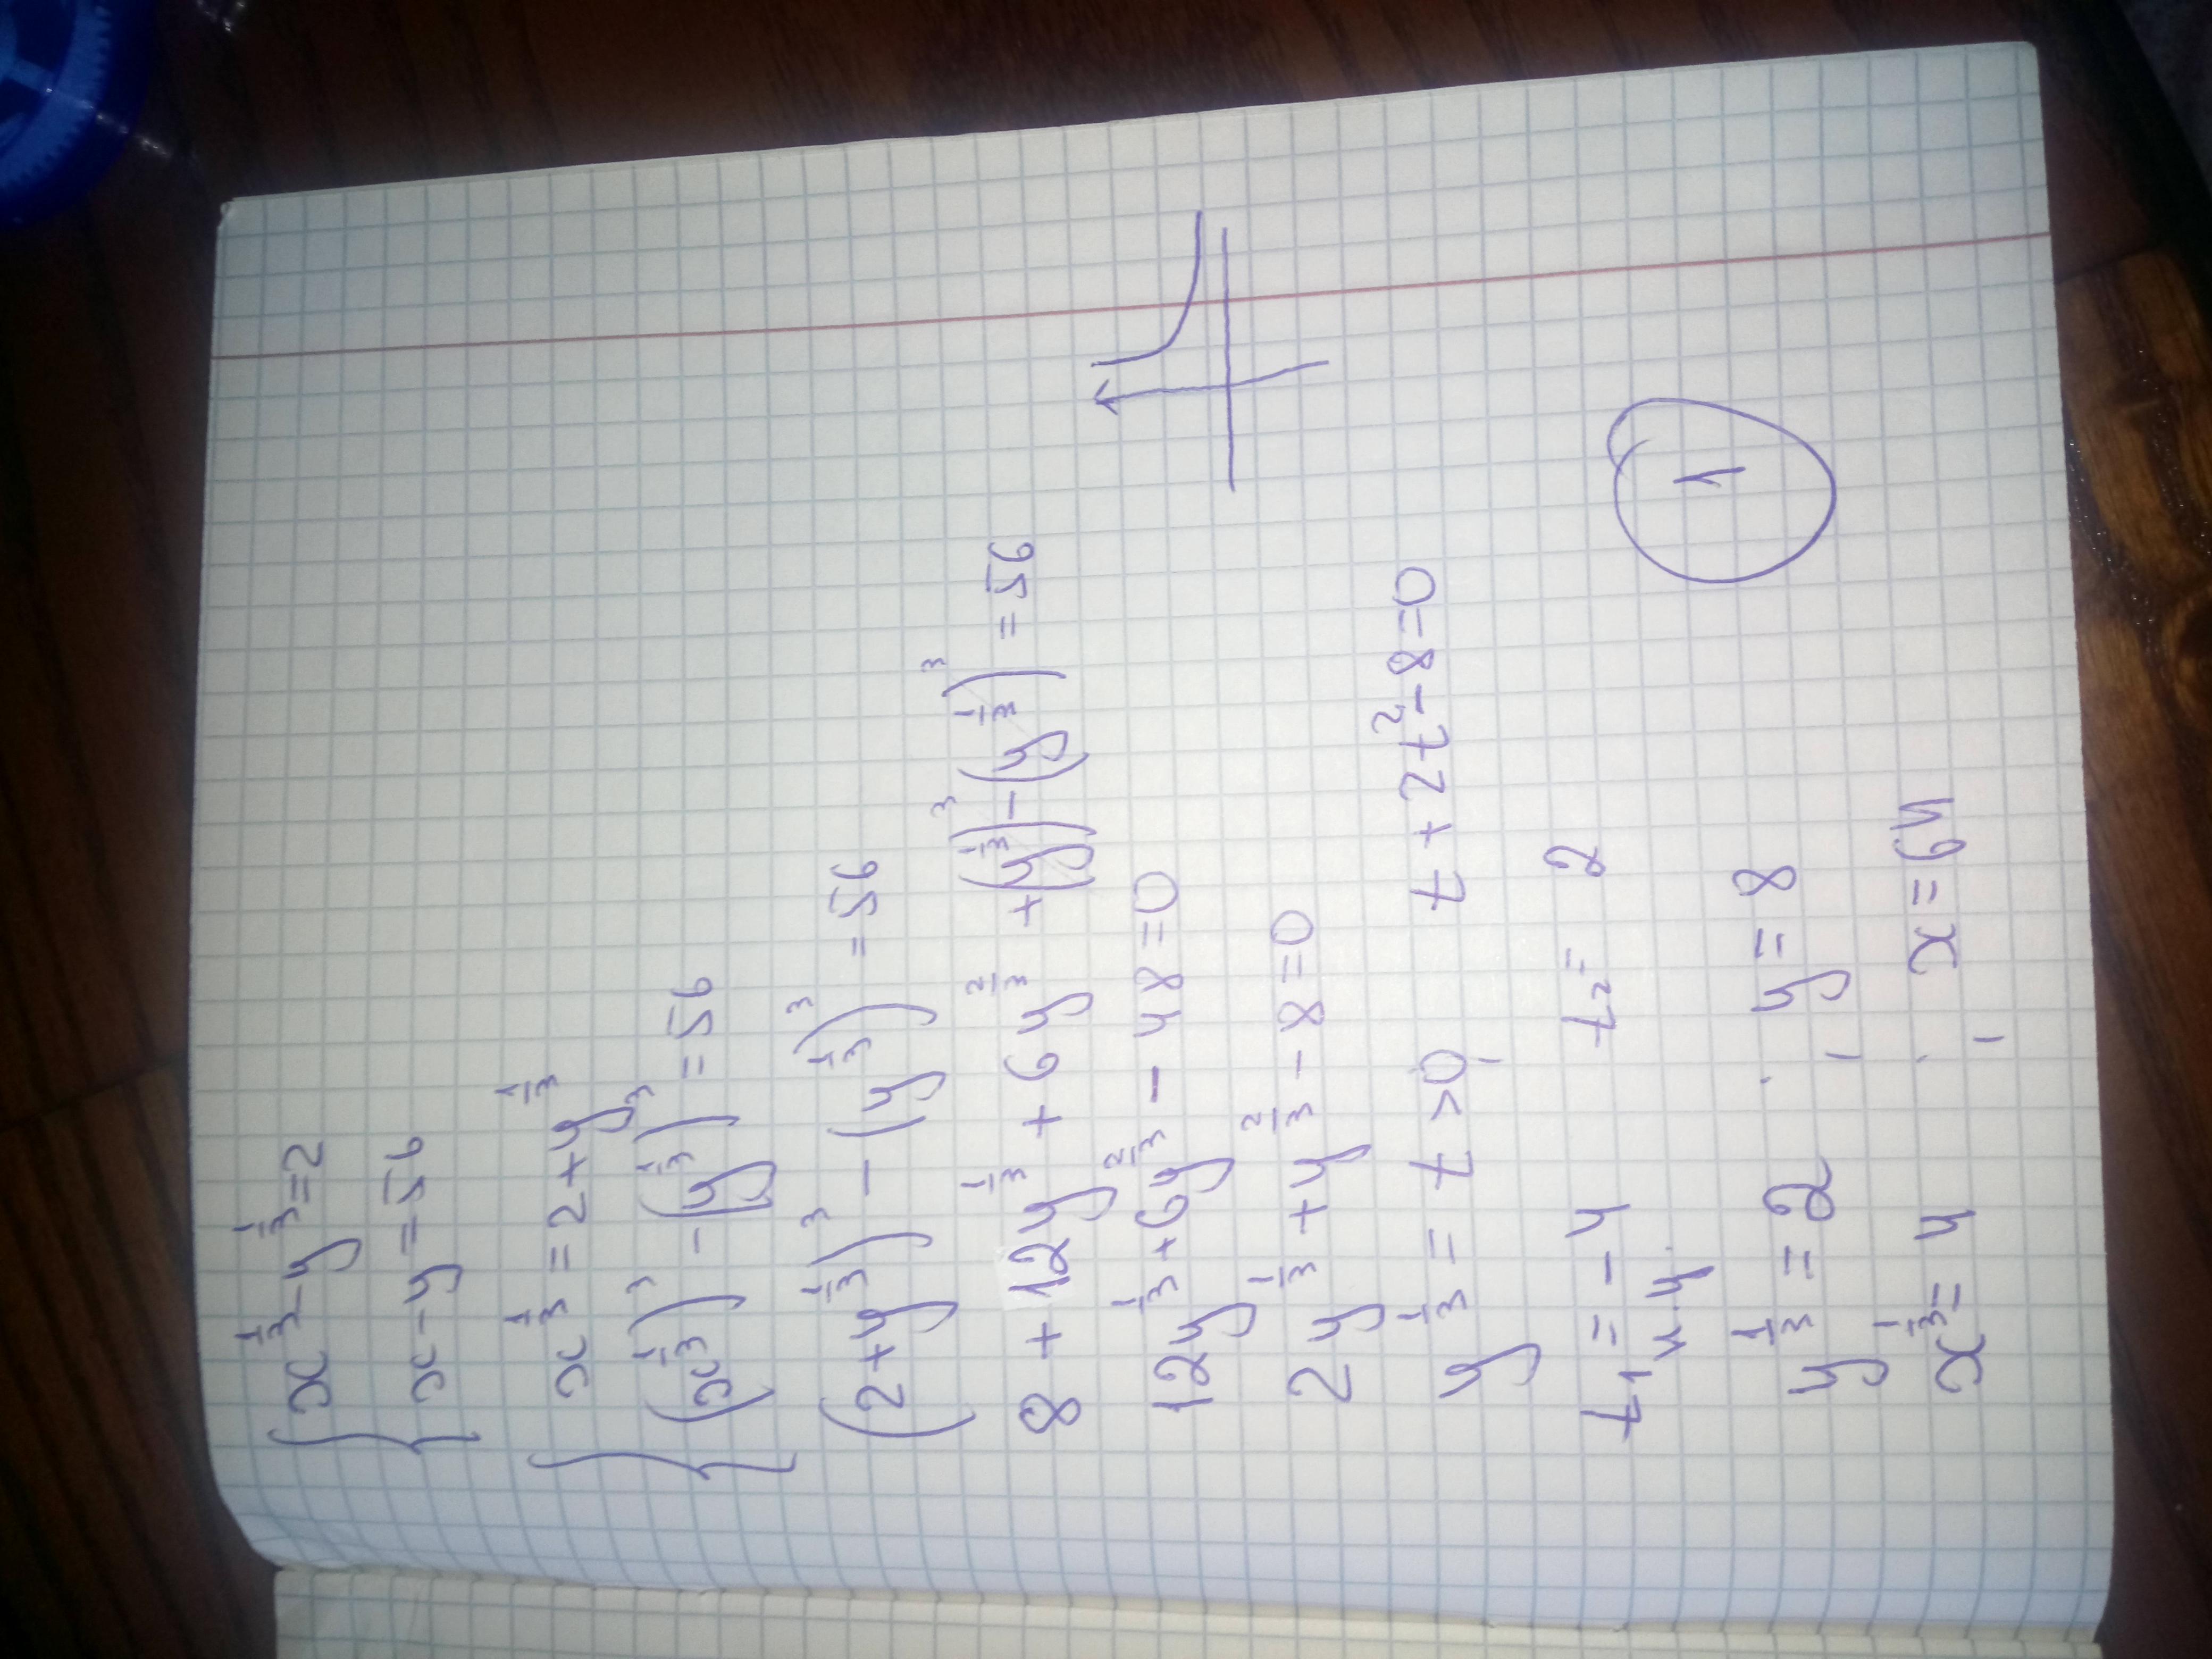 { x^{1/3} - y^{1/3} = 2
x - y = 56
{ x^{1/3} = 2 + y^{1/3}
(x^{1/3})^3 - (y^{1/3})^3 = 56
(2 + y^{1/3})^3 - (y^{1/3})^3 = 56
8 + 12y^{1/3} + 6y^{2/3} + (y^{1/3})^3 - (y^{1/3})^3 = 56
12y^{1/3} + 6y^{2/3} - 48 = 0
2y^{1/3} + y^{2/3} - 8 = 0
y^{1/3} = t > 0, t + 2t^2 - 8 = 0
t_1 = -4 t_2 = 2
п.к.
y^{1/3} = 2 ; y = 8
x^{1/3} = 4 ; x = 64
1